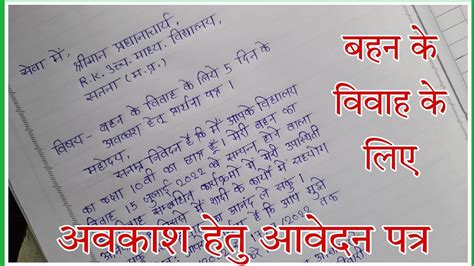 सेवा में,
श्रीमान प्रधानाचार्य,
R.K. उच्च. माध्य. विद्यालय,
सतना (म.प्र.)
विषय- बहन के विवाह के लिये 5 दिन के
अवकाश हेतु प्रार्थना पत्र।
महोदय,
सनम्र निवेदन है कि मैं आपके विद्यालय
का कक्षा 10वीं का छात्र हूँ। मेरी बहन का
विवाह 15 जुलाई 2022 को सम्पन्न होने वाला
सम्बंधित कार्यक्रमों में मेरी उपस्थिती
में शादी के कार्यों में सहयोग
का आनंद ले सकूं।
है कि आप मुझे
/2022 तक
बहन के
विवाह के
लिए
अवकाश हेतु आवेदन पत्र